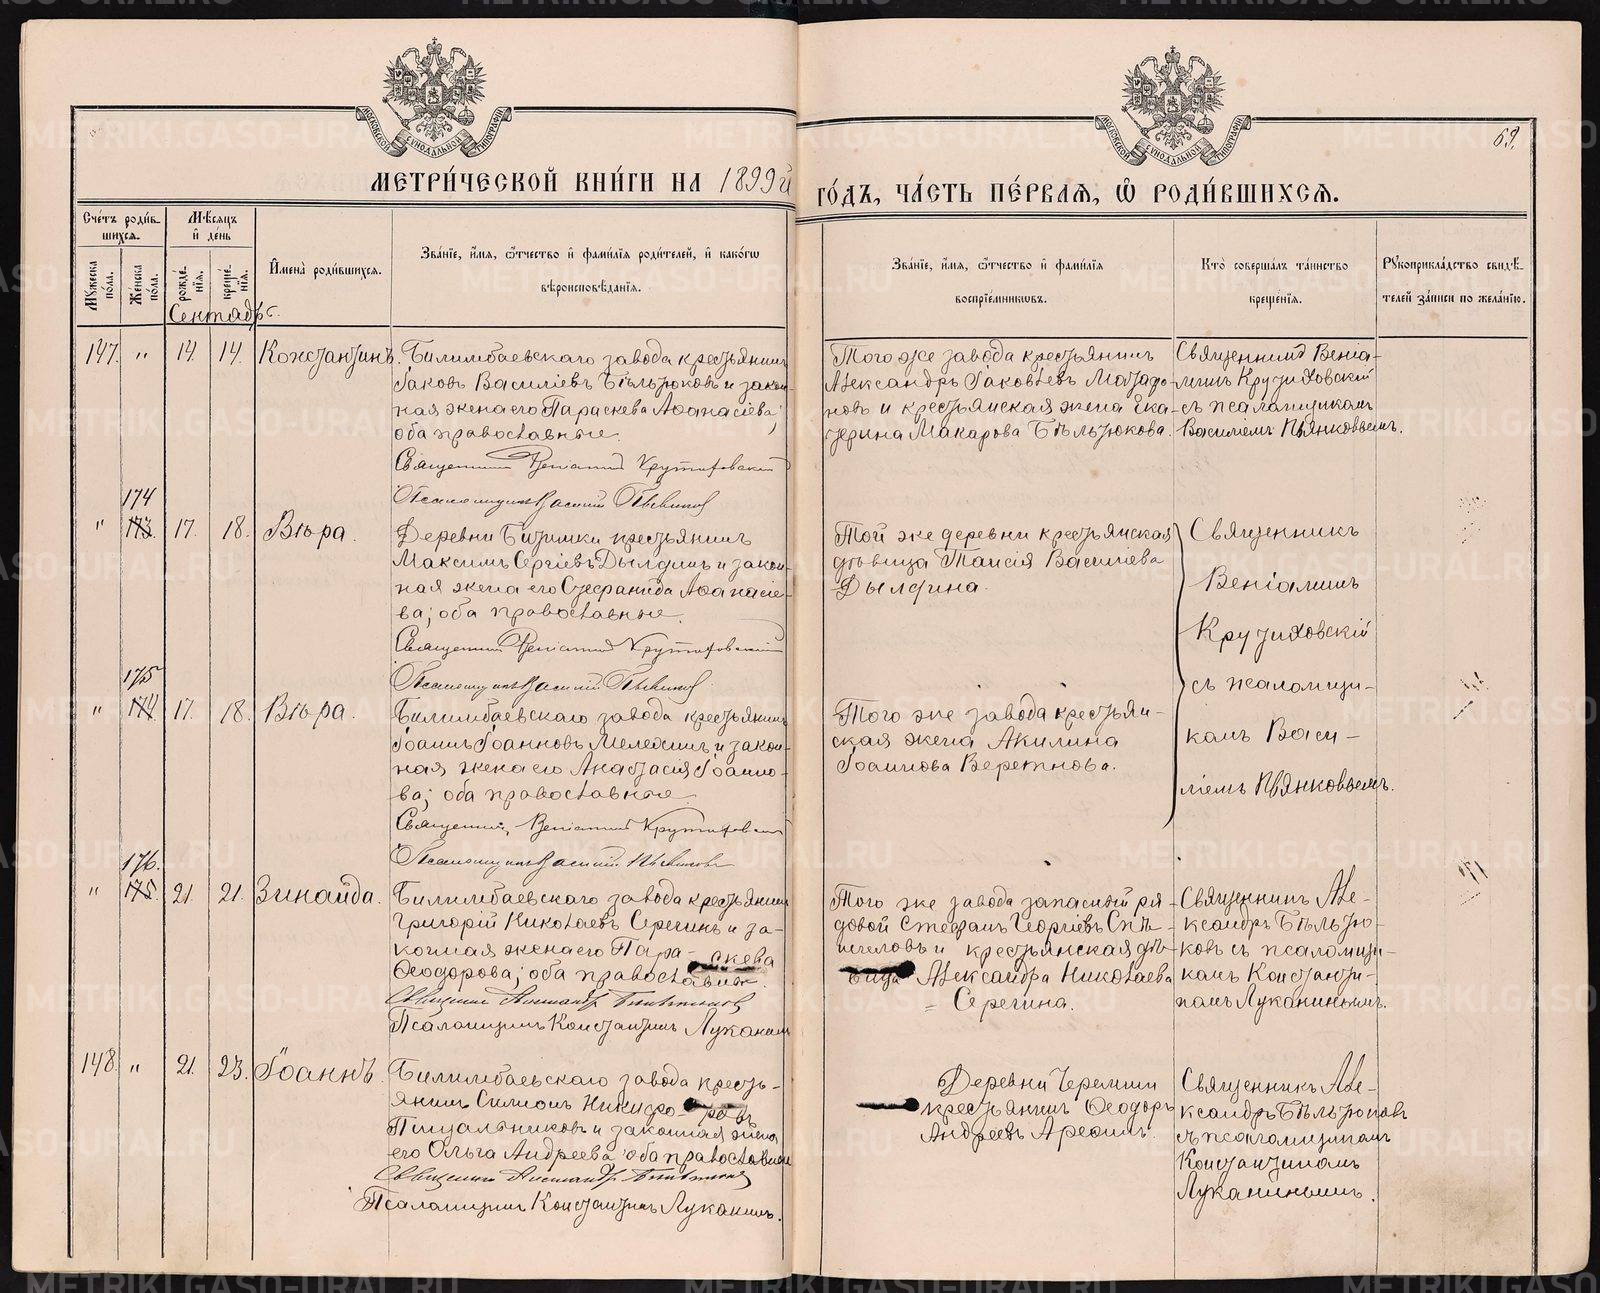 МОСКОВСКОЙ СѴНОДАЛЬНОЙ ТИПОГРАФІИ
МОСКОВСКОЙ СѴНОДАЛЬНОЙ ТИПОГРАФІИ
69.
МЕТРИ́ЧЕСКОЙ КНИ́ГИ НА 1899й
ГО́ДЪ, ЧА́СТЬ ПЕ́РВАѦ, Ѡ РОДИ́ВШИХСѦ.
Сче́тъ роди́в-
шихсѧ.
Мꙋжеска по́ла.
Же́нска по́ла.
Мѣ́сѧцъ и҆ де́нь
рожде́-нїѧ.
креще́-нїѧ.
Сентябрь.
И҆мена̀ роди́вшихсѧ.
Зва́нїе, и҆́мѧ, ѻ҆́тчество и҆ фами́лїѧ роди́телей, и҆ како́гѡ
вѣроисповѣ́данїѧ.
Зва́нїе, и҆́мѧ, ѻ҆́тчество и҆ фами́лїѧ
воспрїе́мникѡвъ.
Кто̀ соверша́лъ та́инство
креще́нїѧ.
Рꙋкоприкла́дство свидѣ́-
телей за́писи по жела́нїю.
147. " 14. 14. Константинъ.
Билимбаевскаго завода крестьянинъ
Іаковъ Василіевъ Бѣльтюковъ и закон-
ная жена его Параскева Аѳанасіева;
оба православные.
Священникъ Веніаминъ Крутиховскій
Псаломщикъ Василій Пьянковъ
Того же завода крестьянинъ
Александръ Іаковлевъ
и крестьянская жена Ека-
терина Макарова Бѣльтюкова.
Священникъ Веніа-
минъ Крутиховскій
съ псаломщикомъ
Василіемъ Пьянковымъ.
174
" 173. 17. 18. Вѣра.
Деревни Битимки крестьянинъ
Максимъ Сергіевъ Дылдинъ и закон-
ная жена его Стефанида Аѳанасіе-
ва; оба православные.
Священникъ Веніаминъ Крутиховскій
Псаломщикъ Василій Пьянковъ
Той же деревни крестьянская
дѣвица Таисія Василіева
Дылдина.
Священникъ
Веніаминъ
Крутиховскій
съ псаломщи-
комъ Васи-
ліемъ Пьянковымъ.
175
" 174. 17. 18. Вѣра.
Билимбаевскаго завода крестьянинъ
Іоаннъ Іоанновъ Мелехинъ и закон-
ная жена его Анастасія Іоанно-
ва; оба православные.
Священникъ Веніаминъ Крутиховскій
Псаломщикъ Василій Пьянковъ
Того же завода крестьян-
ская жена Акилина
Іоаннова
176.
" 175. 21. 21. Зинаида.
Билимбаевскаго завода крестьянинъ
Григорій Николаевъ Серегинъ и за-
конная жена его Пара- скева
Ѳеодорова; оба православные.
Священникъ Александръ Бѣльтюковъ
Псаломщикъ Константинъ Луканинъ
Того же завода запасной ря-
довой Стефанъ Георгіевъ
и крестьянская дѣ-
вица Александра Николаева
= Серегина.
Священникъ Але-
ксандръ Бѣльтю-
ковъ съ псаломщи-
комъ Константи-
номъ Луканинымъ.
148. " 21. 23. Іоаннъ.
Билимбаевскаго завода кресть-
янинъ Симеонъ Никифо- ровъ
Пищальниковъ и законная жена
его Ольга Андреева оба православные
Священникъ Александръ Бѣльтюковъ
Псаломщикъ Константинъ Луканинъ.
Деревни Черемши
крестьянинъ Ѳеодоръ
Андреевъ Арефинъ.
Священникъ Але-
ксандръ Бѣльтюковъ
съ псаломщикомъ
Константиномъ
Луканинымъ.
METRIKI.GASO-URAL.RU